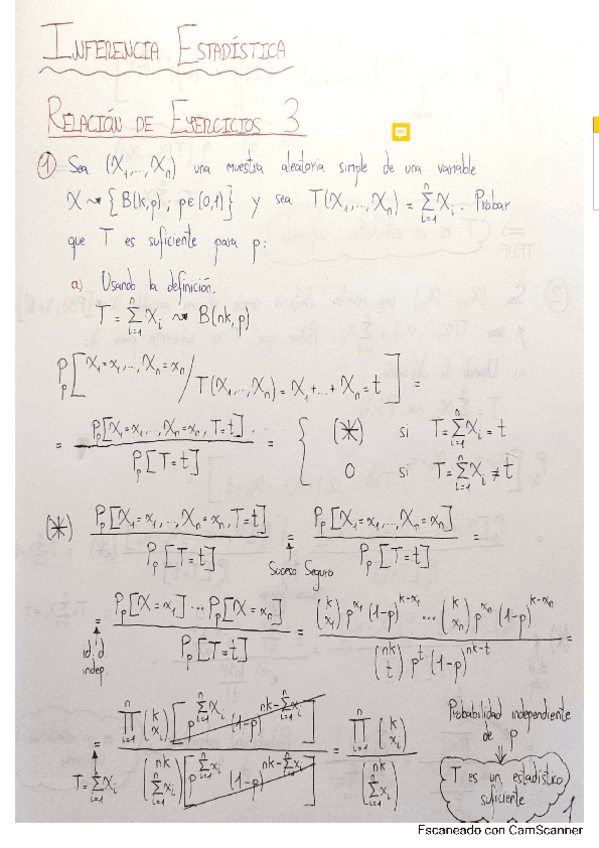 INFERENCIA ESTADÍSTICA
RELACIÓN DE EJERCICIOS 3
① Sea (X₁,...,Xₙ) una muestra aleatoria simple de una variable
X ⇝ {B(k,p); p∈(0,1)} y sea T(X₁,...,Xₙ) = Σᵢ₌₁ⁿ Xᵢ. Probar
que T es suficiente para p:
a) Usando la definición.
T = Σᵢ₌₁ⁿ Xᵢ ⇝ B(nk,p)
Pₚ[X₁=x₁,...,Xₙ=xₙ / T(X₁,...,Xₙ) = X₁+...+Xₙ = t] =
= Pₚ[X₁=x₁,...,Xₙ=xₙ, T=t] / Pₚ[T=t] = { (*) si T=Σᵢ₌₁ⁿ Xᵢ = t
0 si T=Σᵢ₌₁ⁿ Xᵢ ≠ t
(*) Pₚ[X₁=x₁,...,Xₙ=xₙ, T=t] / Pₚ[T=t] = Pₚ[X₁=x₁,...,Xₙ=xₙ] / Pₚ[T=t] =
↑
Suceso Seguro
= Pₚ[X=x₁]...Pₚ[X=xₙ] / Pₚ[T=t] = (k x₁) p^x₁ (1-p)^(k-x₁) ... (k xₙ) p^xₙ (1-p)^(k-xₙ) / (nk t) p^t (1-p)^(nk-t) =
↑
id. d
indep.
= ∏ᵢ₌₁ⁿ (k xᵢ) [p^(Σᵢ₌₁ⁿ xᵢ) (1-p)^(nk-Σᵢ₌₁ⁿ xᵢ)] / (nk Σᵢ₌₁ⁿ xᵢ) [p^(Σᵢ₌₁ⁿ xᵢ) (1-p)^(nk-Σᵢ₌₁ⁿ xᵢ)] = ∏ᵢ₌₁ⁿ (k xᵢ) / (nk Σᵢ₌₁ⁿ xᵢ)
↑
T=Σᵢ₌₁ⁿ Xᵢ
Probabilidad independiente
de p
⇓
T es un estadístico
suficiente
1
Escaneado con CamScanner